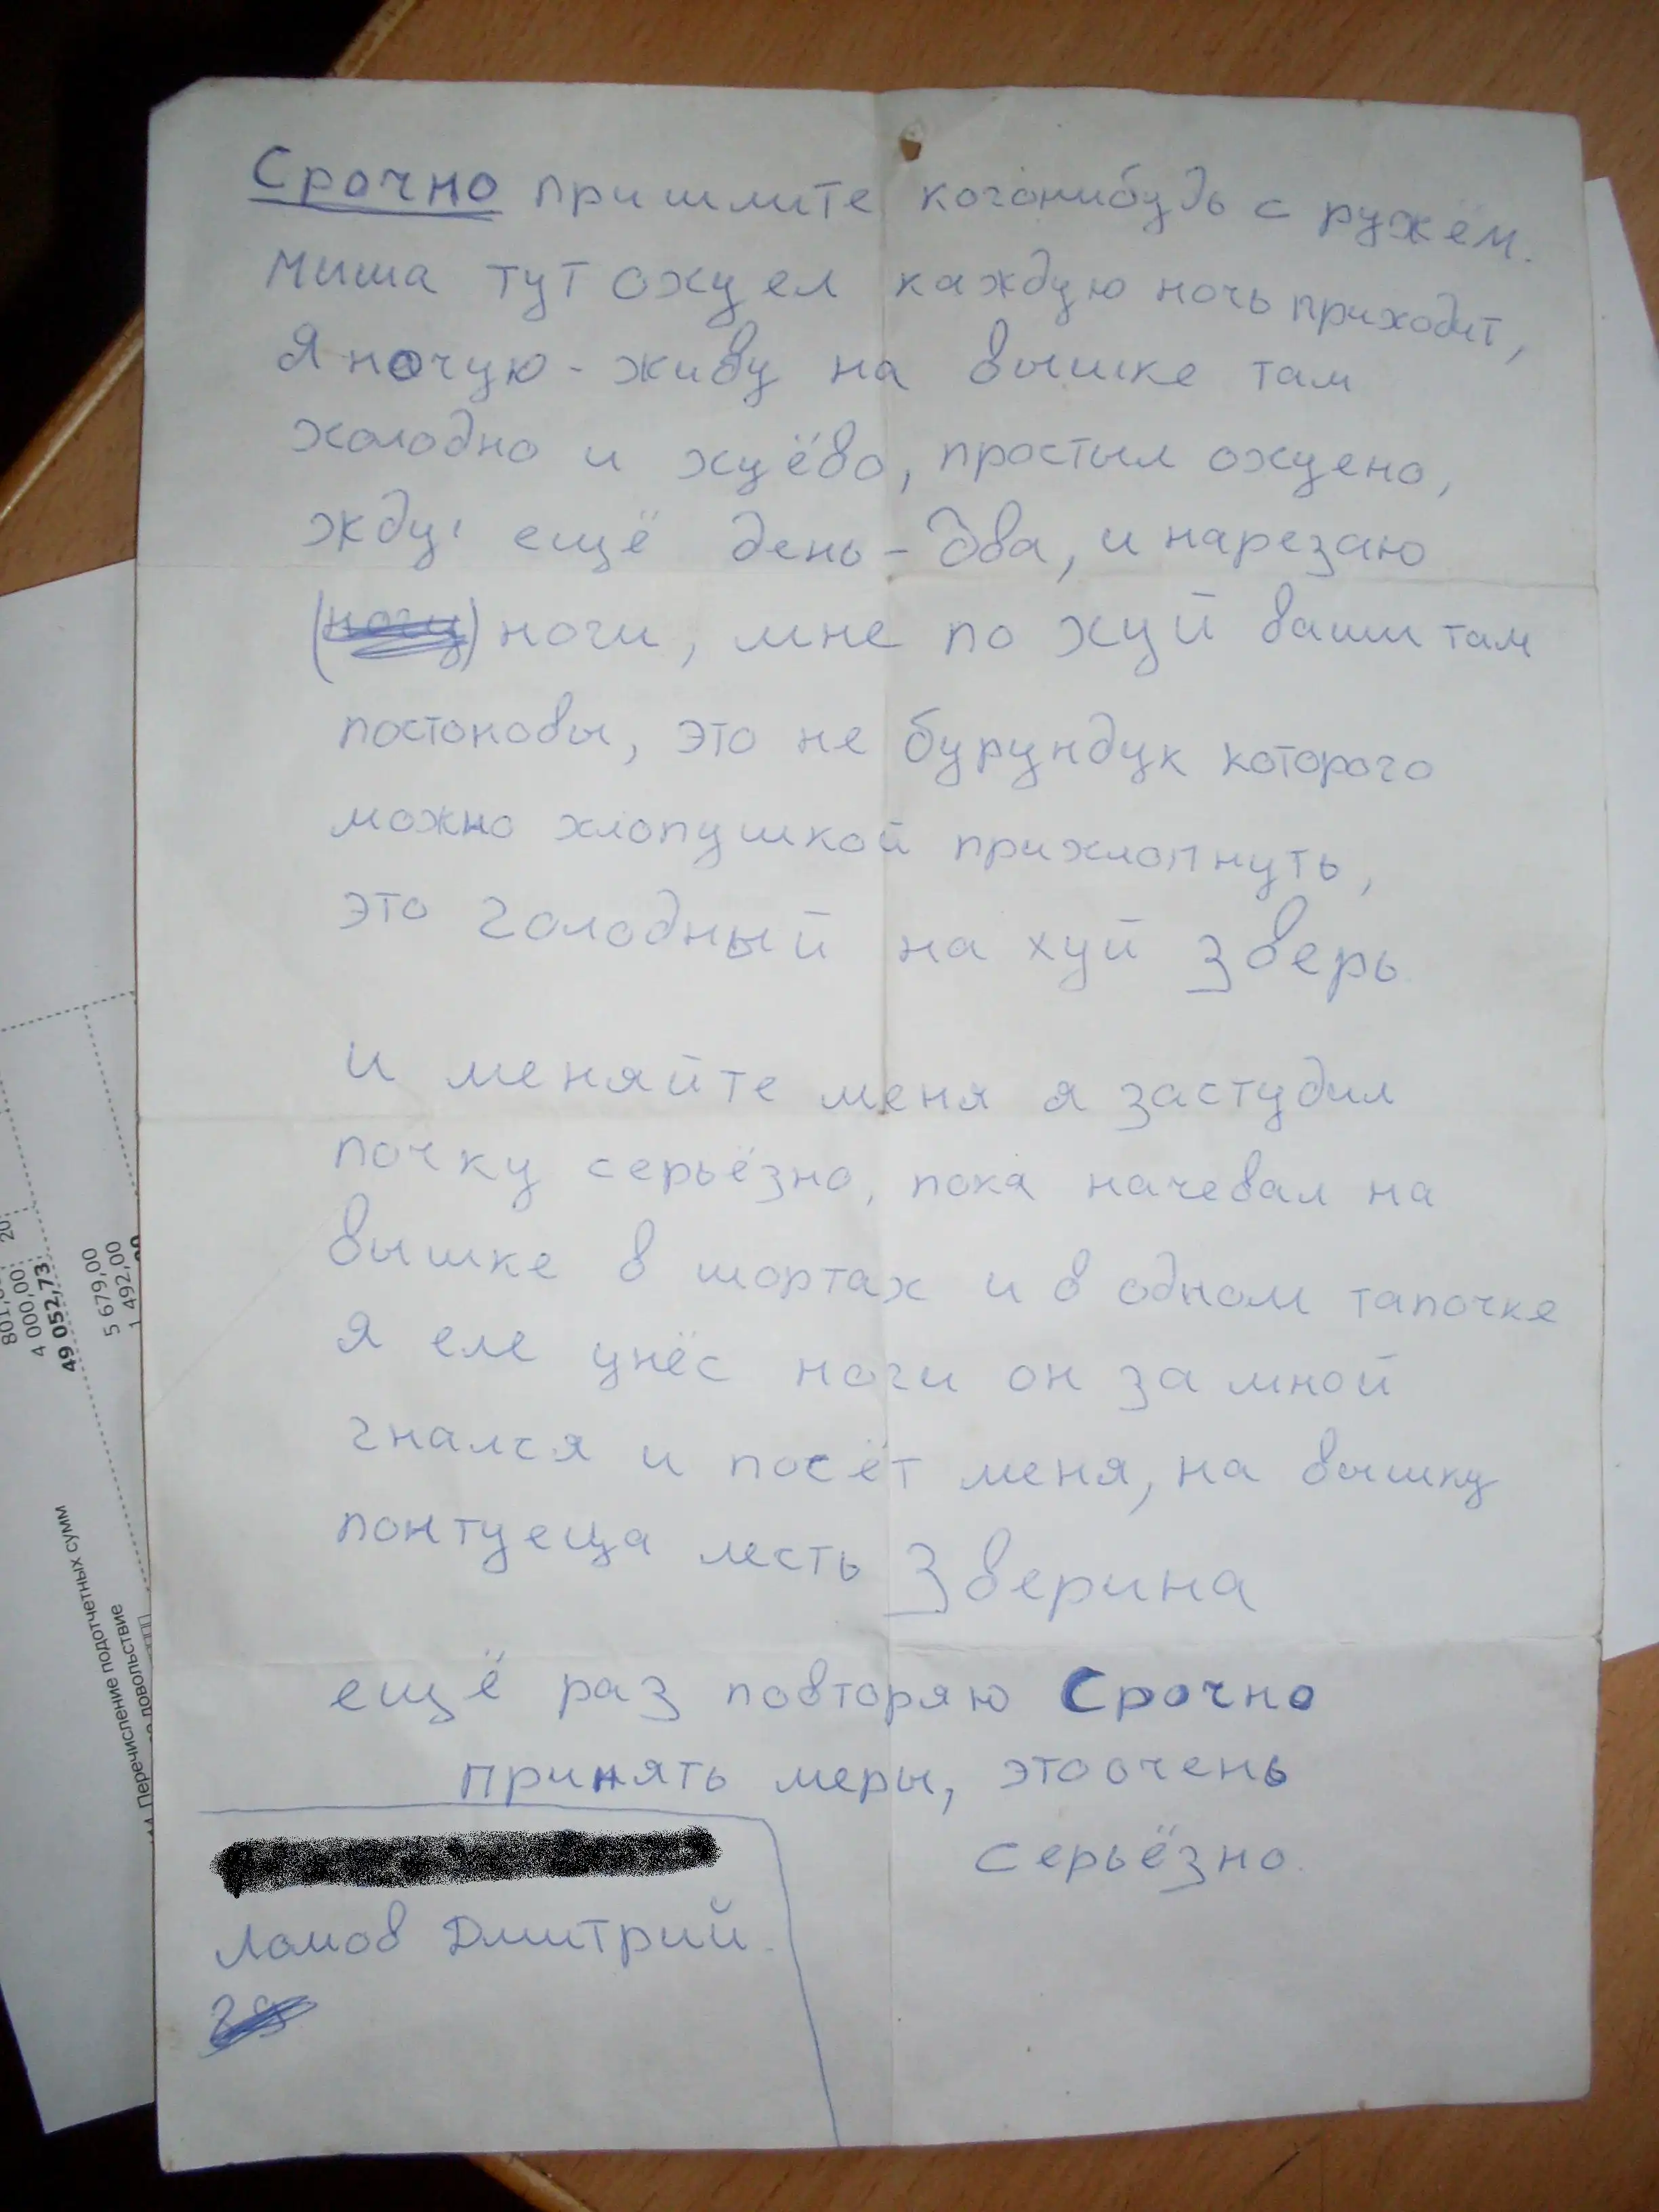 Срочно пришлите когонибудь с ружьём.
Миша тут охуел каждую ночь приходит,
Я ночую - живу на вышке там
холодно и хуёво, простыл охуено,
жду ещё день-два, и нарезаю
ноги, мне по хуй ваши там
постоновы, это не бурундук которого
можно хлопушкой прихлопнуть,
это голодный на хуй зверь
и меняйте меня я застудил
почку серьёзно, пока начевал на
вышке в шортах и в одном тапочке
я еле унёс ноги он за мной
гнался и посёт меня, на вышку
понтуеща лесть Зверина
ещё раз повторяю Срочно
принять меры, это очень
серьёзно.
Ломов Дмитрий.
4 000,00
49 052,73
5 679,00
1 492,00
Перечисление подотчетных сумм
довольствие